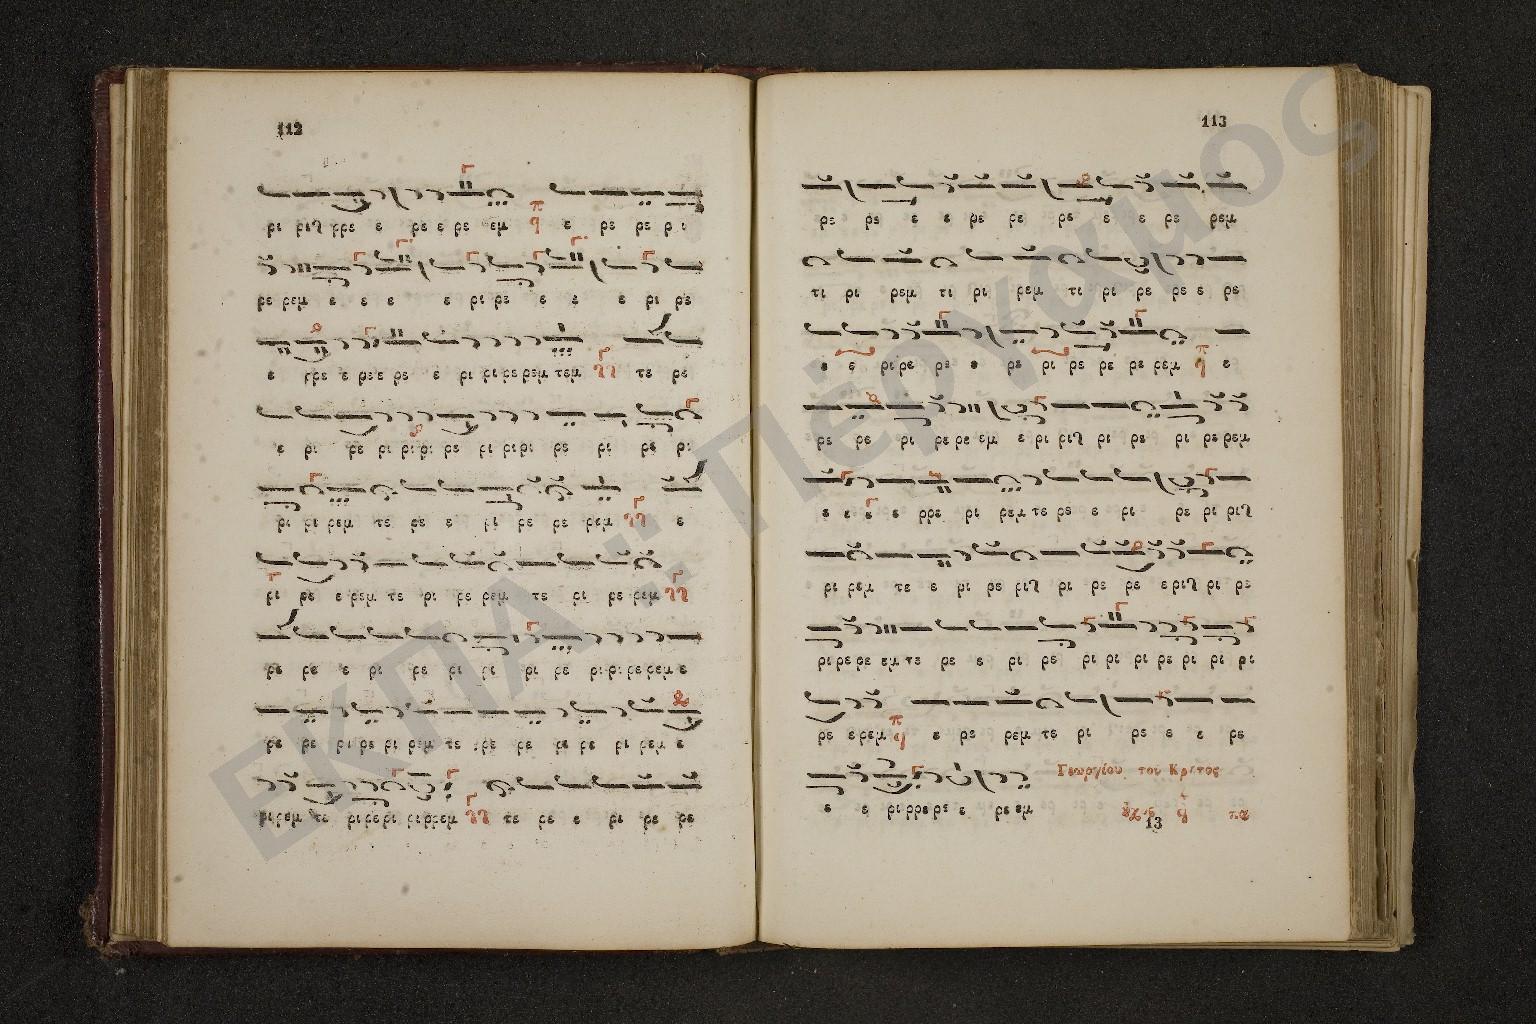 112
ρε ρις τρρε ε ρε ε ρε εμ π q ε ρε ρε ρι
ρε ρεμ ε ε ε ε ρι ρε ε ε ε ρι ρε
ε τρρε ε ρεε ρε ε ρι ρι ρε ρεμ τεμ τε ρε
ε ρι ρε ρι ρι ρι ρε ρι ρι ρι ρε ρι ρε ρι
ρι ρι ρεμ τε ρε ε ρι ρε ρε ρεμ ε
ρι ρε ε ρεμ τε ρι ρε ρεμ τε ρι ρε ρεμ
ρε ρε ε ρι ρε ρι ρι ρι ρε ρι ρι ρε ρεμ ε
ρε ρε ρι ρε ρι ρεμ τε ρρε ρε ρι ρε ρι ρεμ ε
ρι ρεμ τε ρι ρε ρι ρι ρρεμ τε ρε ε ρι ρε ρε
113
ρε ρε ε ε ρε ρε ρε ε ε ρε ρεμ
τι ρι ρεμ τι ρι ρεμ τι ρι ρε ρε ε ρε
ε ε ρι ρε ρε ε ρε ρι ρε ρε ρε ρεμ π q ε
ρε ρε ρι ρε ρε εμ ε ρι ρις ρι ρε ρι ρε ρεμ
ε ε ε ε ρρε ρι ρεμ τε ρε ε ρι ρε ρι ρις
ρι ρεμ τε ε ρι ρε ρις ρι ρε ρε ε ρις ρι ρε
ρι ρε ρε εμ τε ρε ε ρι ρε ρι ρι ρι ρε ρι ρι ρι
ρε ε ρεμ π q ε ρε ρεμ τε ρι ρε ε ε ρε
Γεωργίου του Κρητος
ε ε ρι ρρε ρε ε ρε εμ ἦχος q πα
13